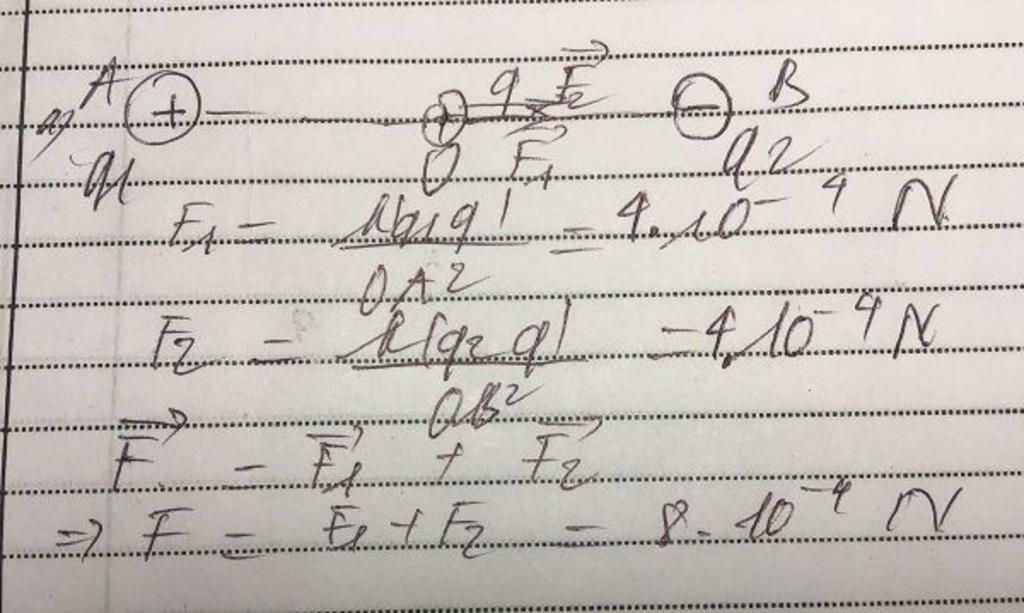 A + q F₂ - B
a) q1 + O F₁ q2
F₁ = k|q1q| / OA² = 4.10⁻⁴ N
F₂ = k|q2 q| / OB² = 4.10⁻⁴ N
F = F₁ + F₂
=> F = F₁ + F₂ = 8.10⁻⁴ N